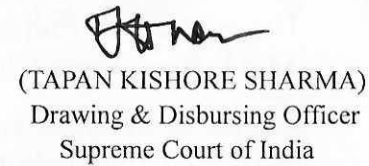 (TAPAN KISHORE SHARMA)
Drawing & Disbursing Officer
Supreme Court of India